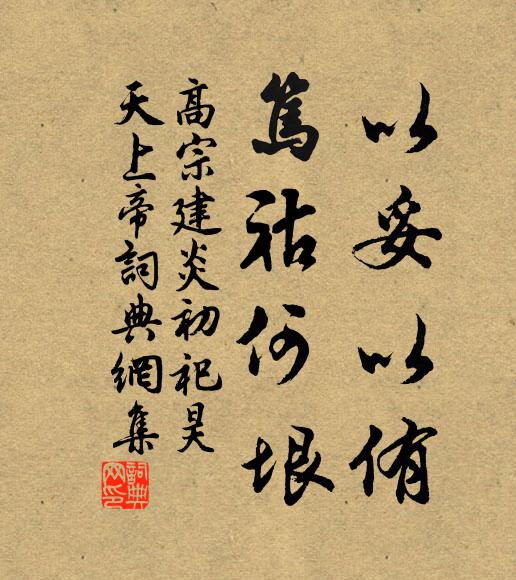 以妥以侑
篤祜何垠
高宗建炎初祀昊
天上帝詞典網集
詞典网印